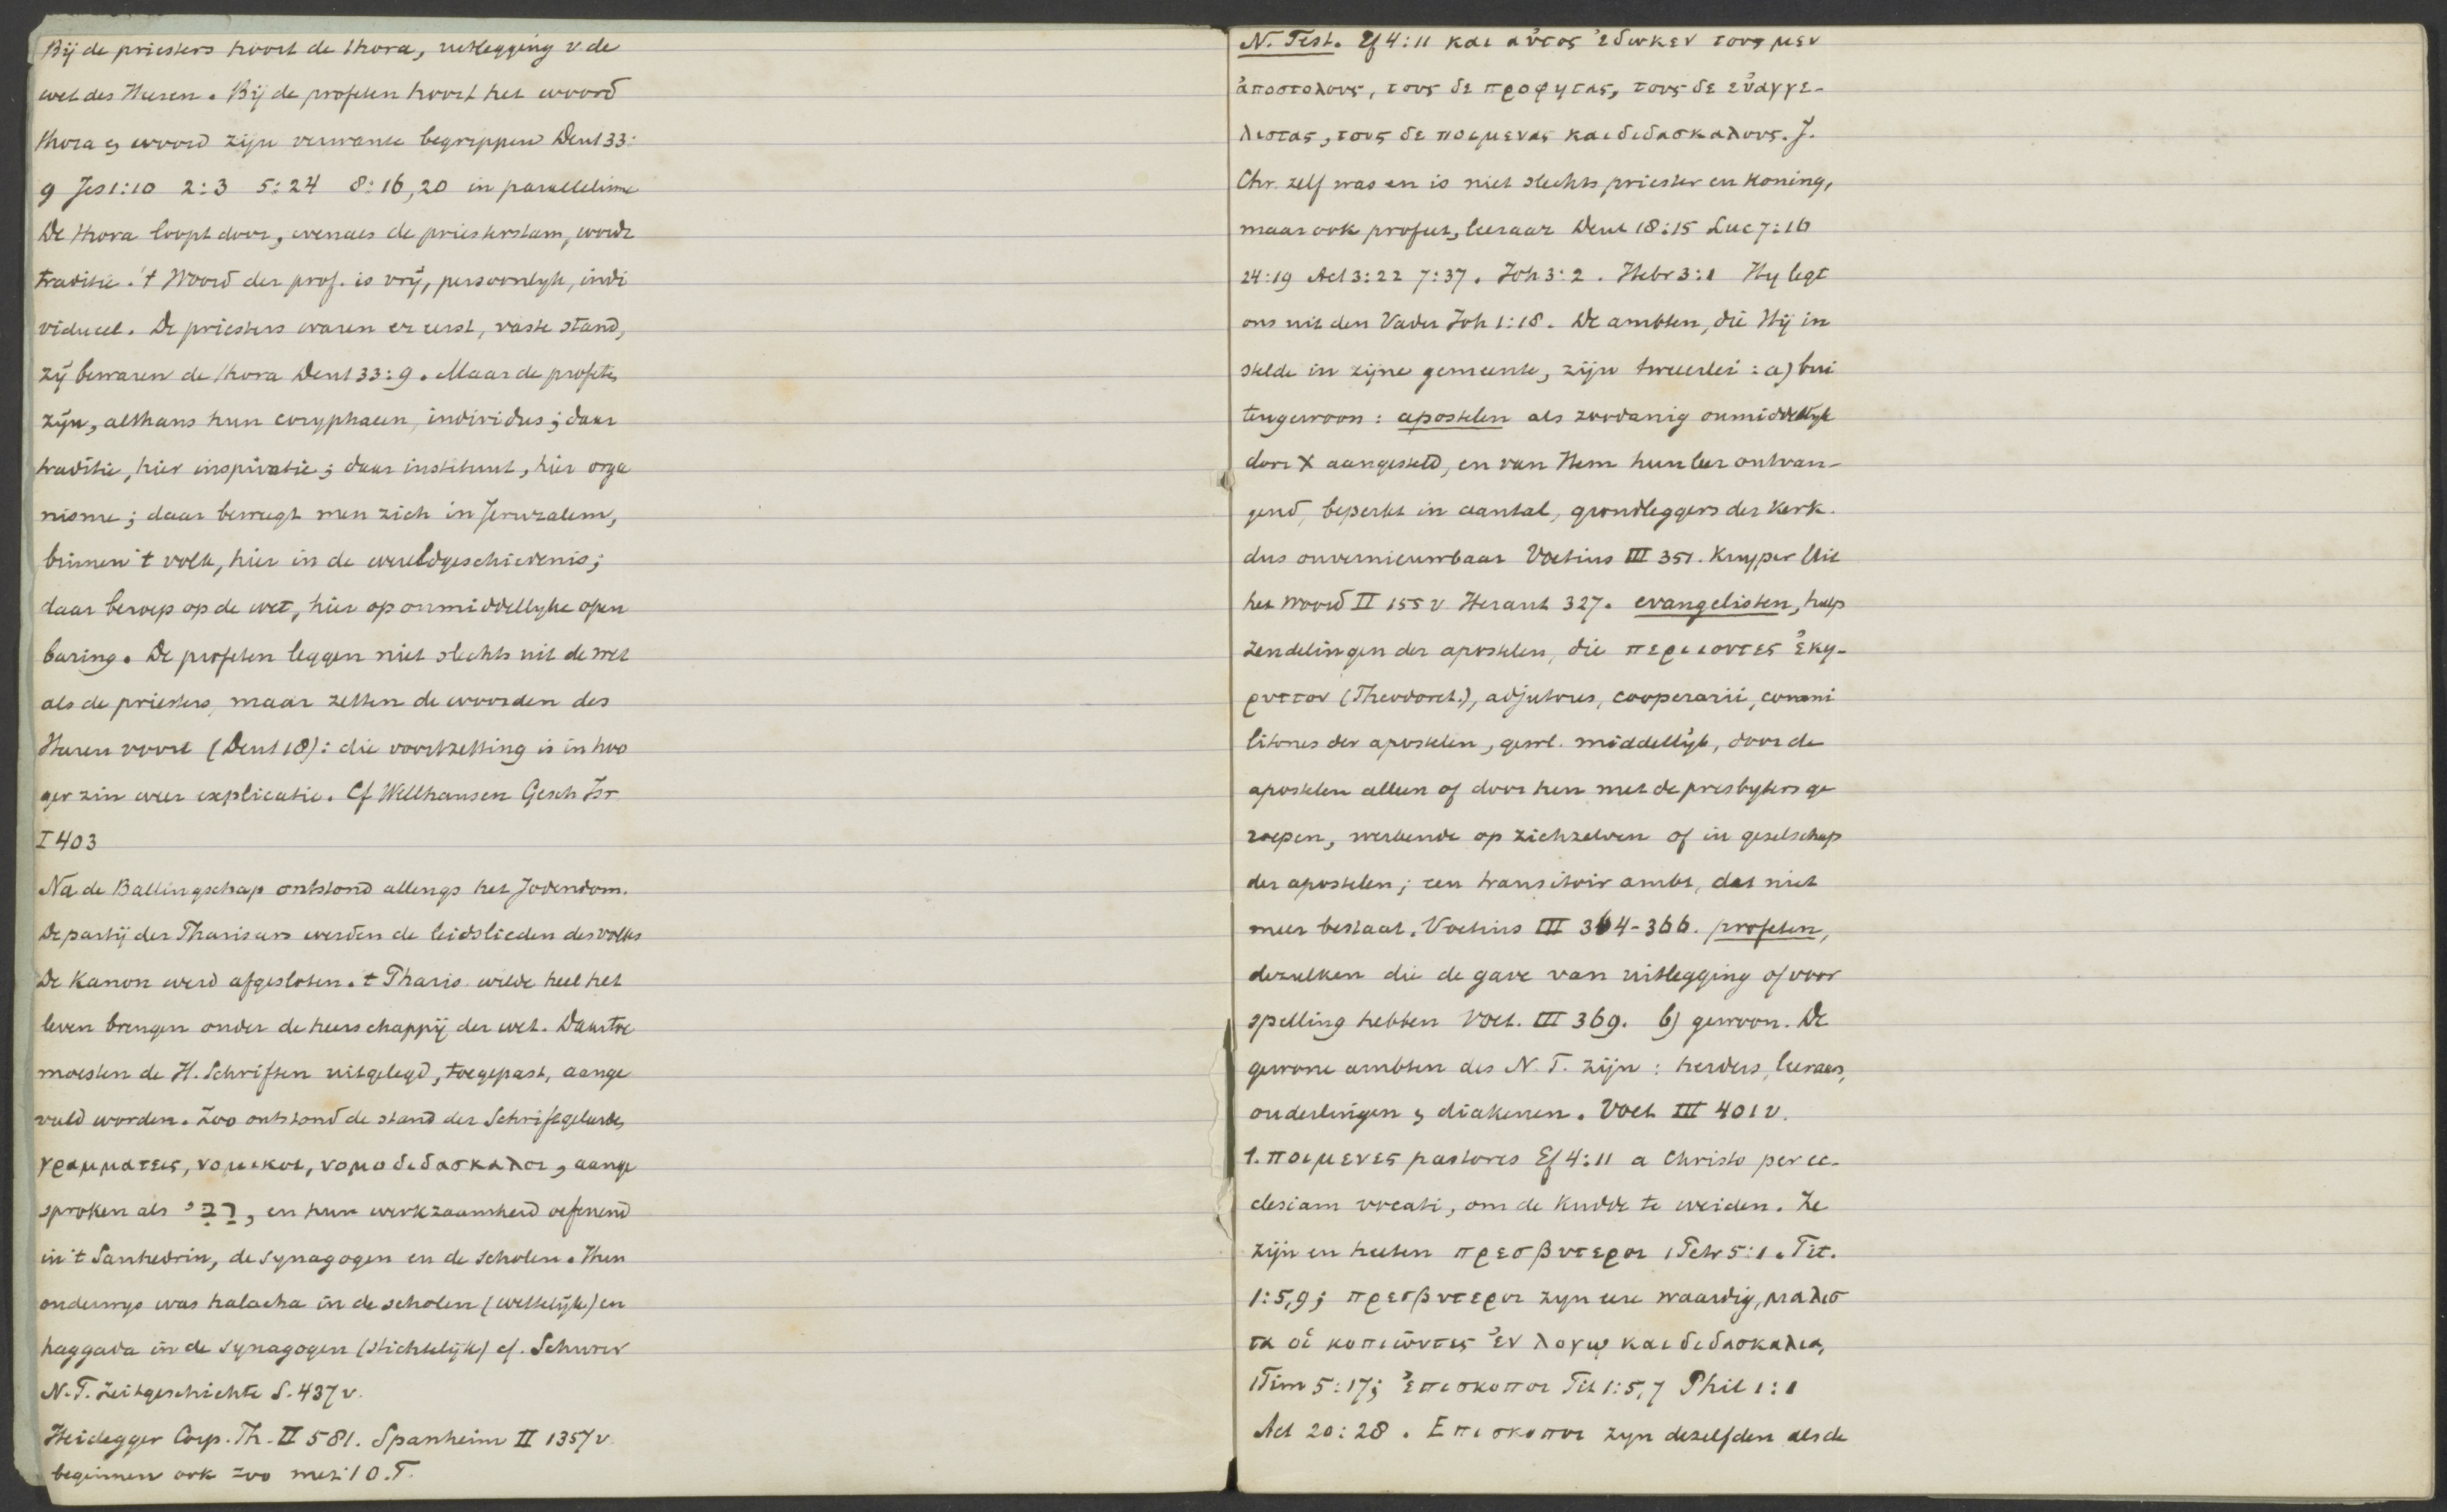 Bij de priesters hoort de thora, uitlegging v. de
wet des Heeren. Bij de profeten hoort het woord
thora en woord zijn verwante begrippen Deut 33:
9 Jes 1:10 2:3 5:24 8:16,20 in parallelisme
De thora loopt door, evenals de priesterstam, wordt
traditie. 't Woord der prof. is vrij, persoonlyk, indi
vidueel. De priesters waren er eerst, vaste stand,
zij bewaren de thora Deut 33:9. Maar de profeten
zijn, althans hun coryphaeen, individus; daar
traditie, hier inspiratie; daar instituut, hier orga
nisme; daar beweegt men zich in Jeruzalem,
binnen 't volk, hier in de wereldgeschiedenis;
daar beroep op de wet, hier op onmiddellyke open
baring. De profeten leggen niet slechts uit de wet
als de priesters, maar zetten de woorden des
Heeren voort (Deut 18): die voortzetting is in hoo
ger zin weer explicatie. Cf Wellhausen Gesch Isr
I 403
Na de Ballingschap ontstond allengs het Jodendom.
De partij der Phariseers werden de leidslieden des volks
De Kanon werd afgesloten. 't Pharis. wilde heel het
leven brengen onder de heerschappij der wet. Daartoe
moesten de H. Schriften uitgelegd, toegepast, aange
vuld worden. Zoo ontstond de stand der Schriftgeleerden,
γραμματεις, νομικοι, νομοδιδασκαλοι, aange
sproken als רַבִּי, en hun werkzaamheid oefenend
in 't Sanhedrin, de synagogen en de scholen. Hun
onderwys was halacha in de scholen (wettelijk) en
haggada in de synagogen (stichtelijk) cf. Schurer
N.T. Zeitgeschichte S. 437 v.
Heidegger Corp. Th. II 581. Spanheim II 1357 v.
beginnen ook zoo met 't O.T.
N. Test. Ef 4:11 και αὐτος ἐδωκεν τους μεν
ἀποστολους, τους δε προφητας, τους δε εὐαγγε-
λιστας, τους δε ποιμενας και διδασκαλους. J.
Chr. zelf was en is niet slechts priester en koning,
maar ook profeet, leeraar Deut 18:15 Luc 7:16
24:19 Act 3:22 7:37. Joh 3:2. Hebr 3:1 Hy legt
ons uit den Vader Joh 1:18. De ambten, die Hij in
stelde in zijne gemeente, zijn tweeerlei: a) bui
tengewoon: apostelen als zoodanig onmiddellyk
door X aangesteld, en van Hem hun leer ontvan-
gend, beperkt in aantal, grondleggers der kerk.
dus onvernieuwbaar Voetius III 351. Kuyper Uit
het Woord II 155 v Heraut 327. evangelisten, hulp
zendelingen der apostelen, die περιιοντες ἐκη-
ρυττον (Theodoret.), adjutores, cooperarii, commi
litones der apostelen, gewl. middellijk, door de
apostelen alleen of door hen met de presbyters ge
roepen, werkende op zichzelven of in gezelschap
der apostelen; een transitoir ambt, dat niet
meer bestaat. Voetius III 364-366. profeten,
dezulken die de gave van uitlegging of voor
spelling hebben Voet. III 369. b) gewoon. De
gewone ambten des N.T. zijn: herders, leeraars,
ouderlingen en diakenen. Voet III 401 v.
1. ποιμενες pastores Ef 4:11 a Christo per ec-
clesiam vocati, om de kudde te weiden. Ze
zijn en heeten πρεσβυτεροι 1 Petr 5:1. Tit.
1:5,9; πρεσβυτεροι zyn eere waardig, μαλισ
τα οἱ κοπιῶντες ἐν λογῳ και διδασκαλια,
1 Tim 5:17; ἐπισκοποι Tit 1:5,7 Phil 1:1
Act 20:28. Επισκοποι zyn dezelfden als de